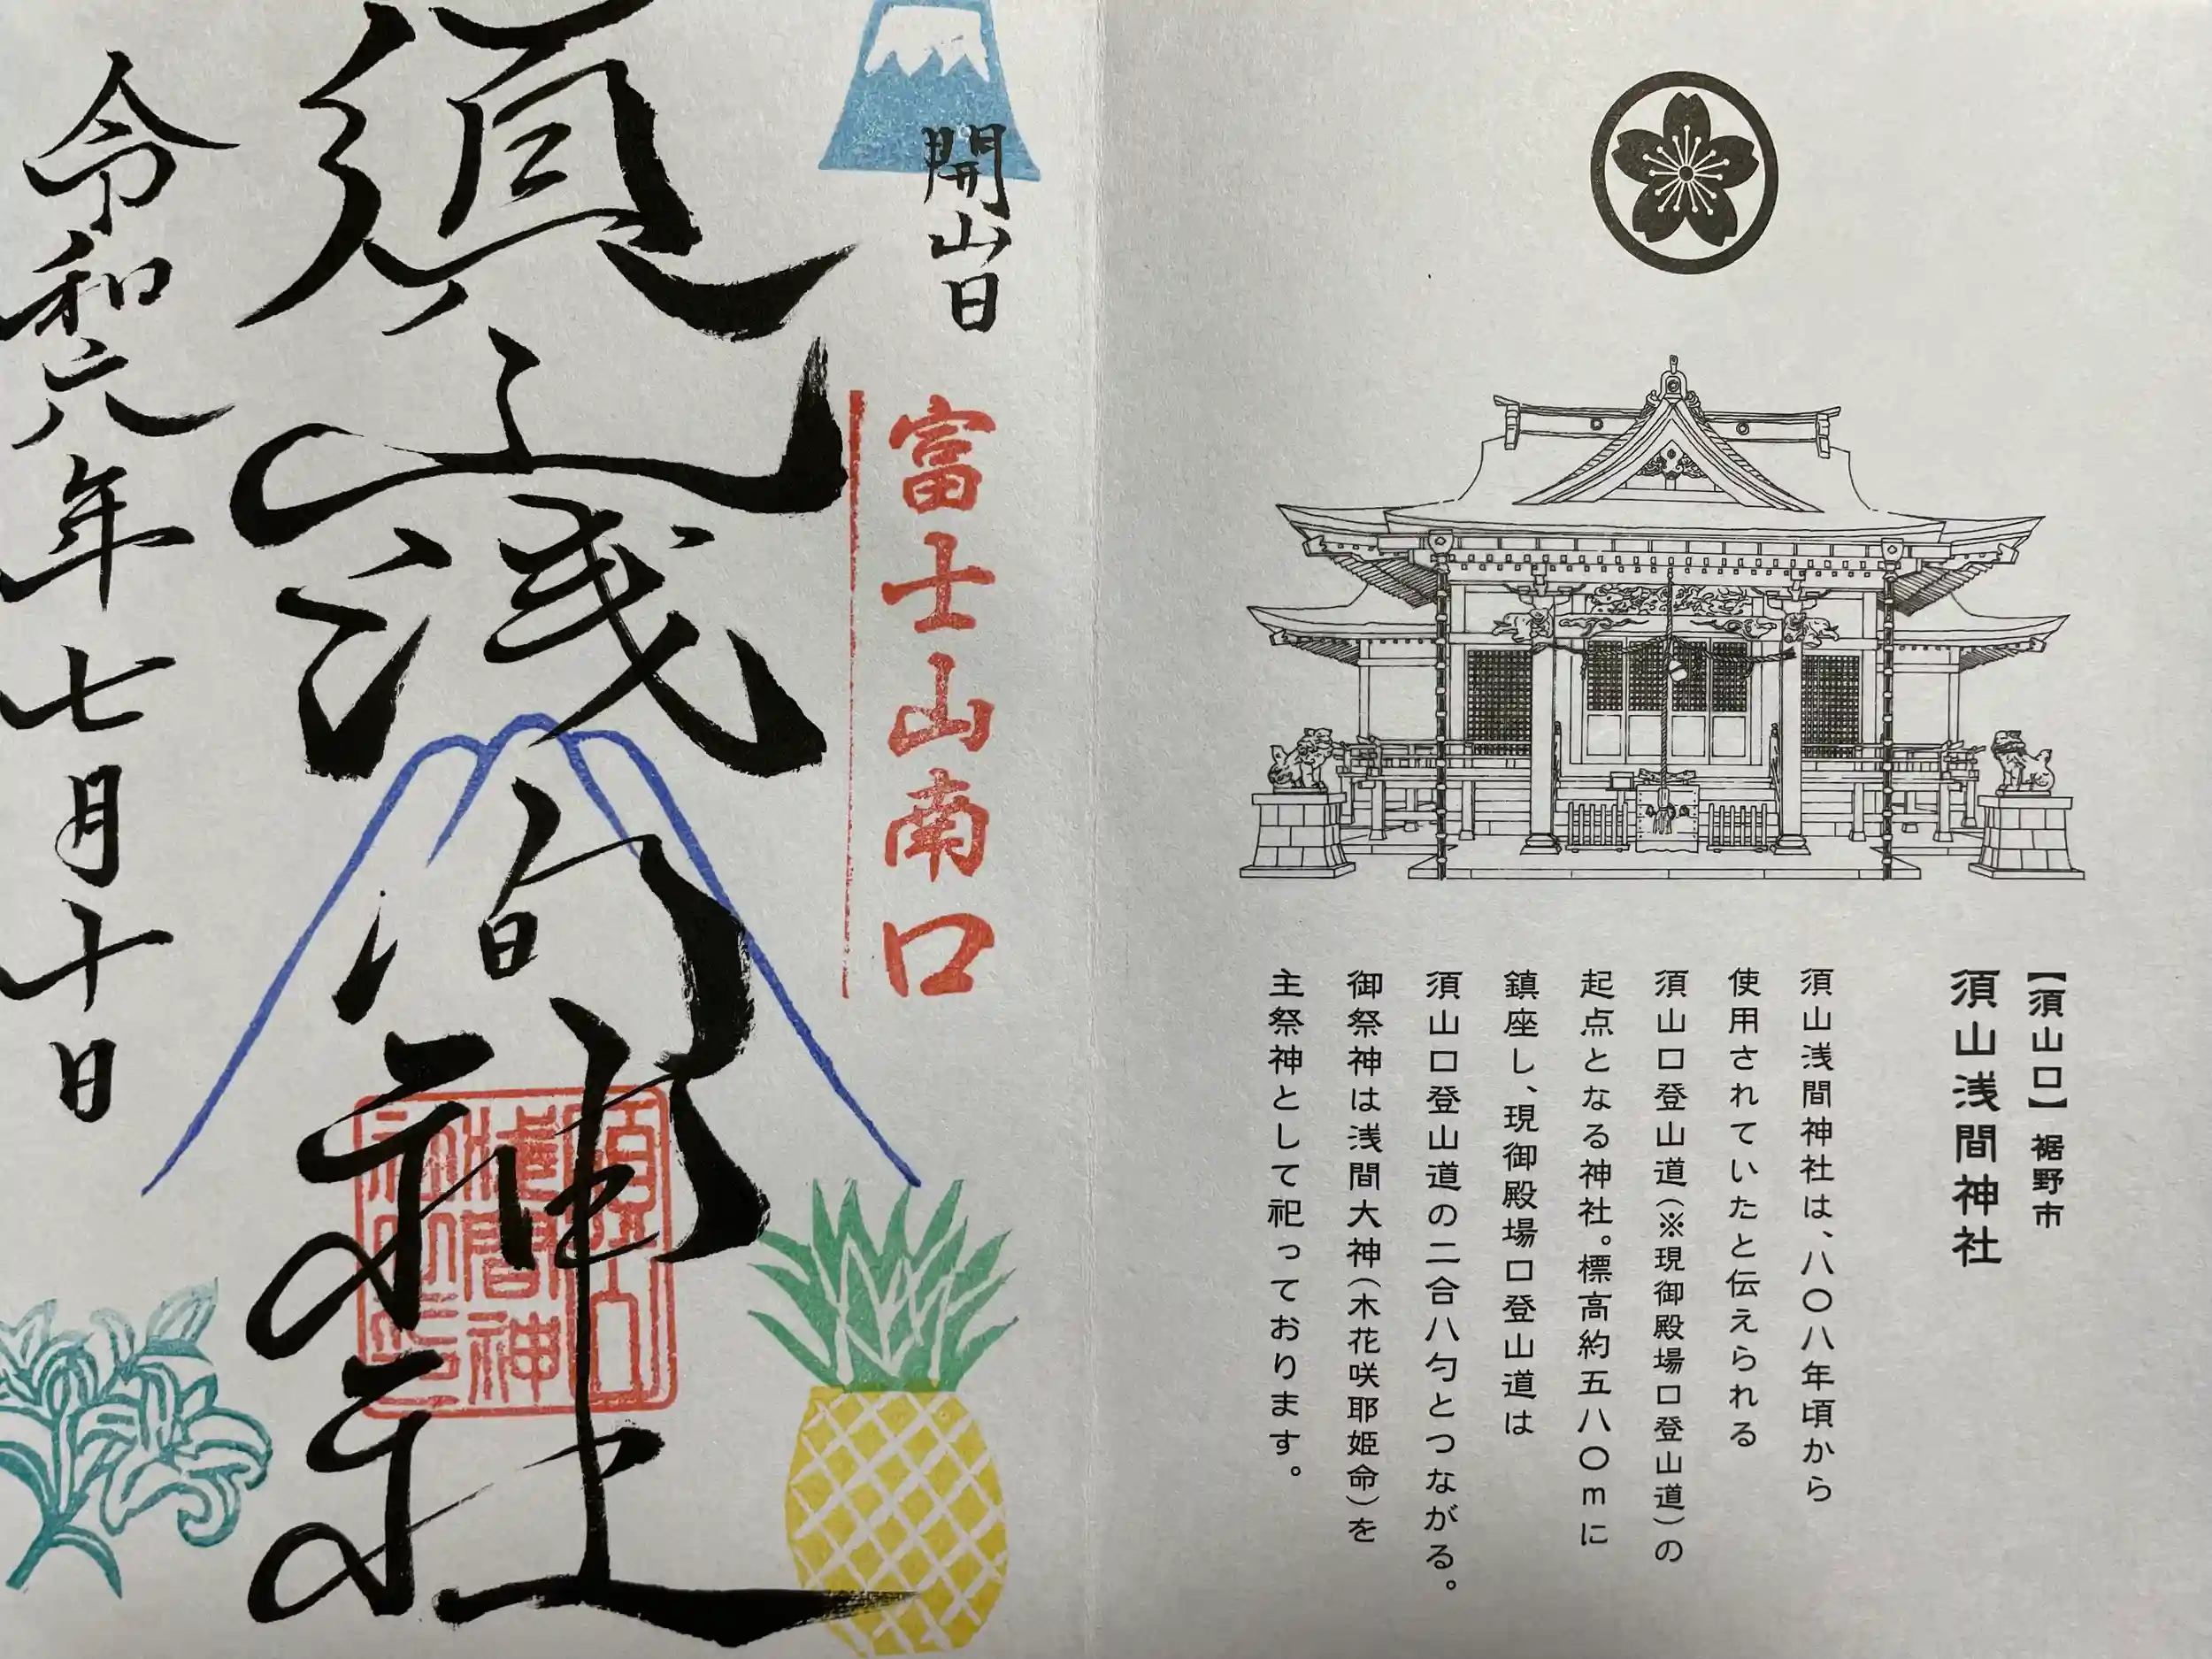 【須山口】裾野市
須山浅間神社
須山浅間神社は、八〇八年頃から
使用されていたと伝えられる
須山口登山道(※現御殿場口登山道)の
起点となる神社。標高約五八〇mに
鎮座し、現御殿場口登山道は
須山口登山道の二合八勺とつながる。
御祭神は浅間大神(木花咲耶姫命)を
主祭神として祀っております。
開山日
富士山南口
須山浅間神社
令和六年七月十日